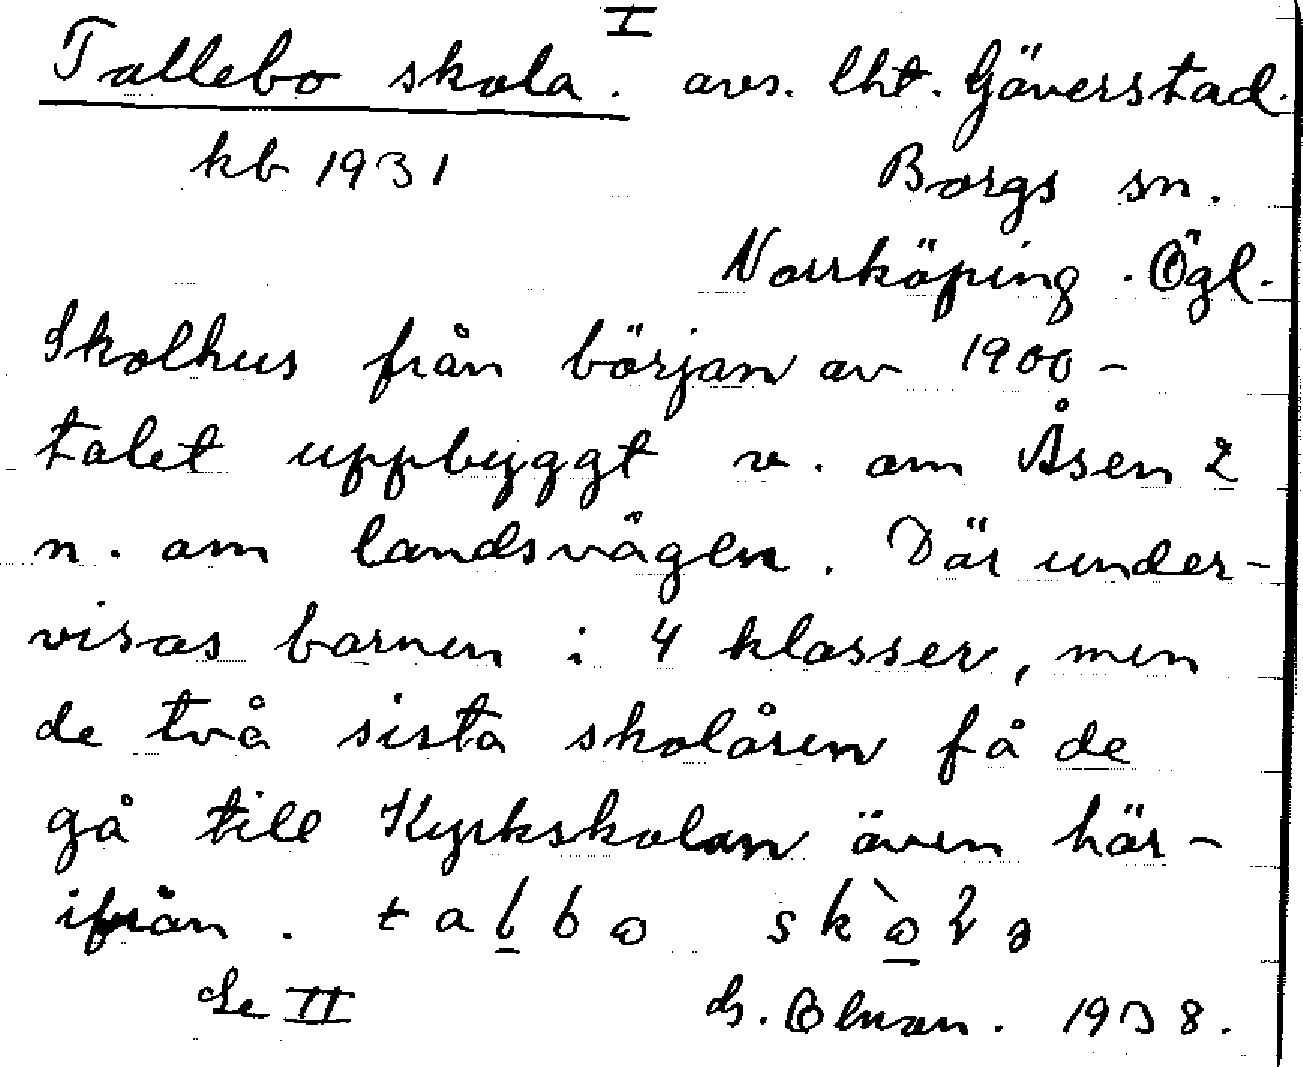 I
Tallebo skola. avs. lht. Gäverstad.
kb 1931 Borgs sn.
Norrköping. Ögl.
Skolhus från början av 1900-
talet uppbyggt v. om Åsen 2
n. om landsvägen. Där under-
visas barnen i 4 klasser, men
de två sista skolåren få de
gå till Kyrkskolan även här-
ifrån. talbo skola
Se II G. Olman. 1938.